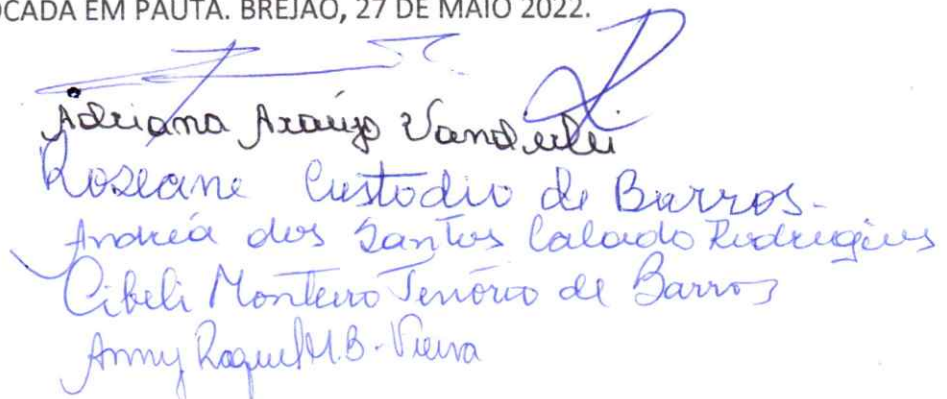 OCADA EM PAUTA. BREJÃO, 27 DE MAIO 2022.
Adriana Araújo Vanderlei
Roseane Custodio de Barros-
Andréa dos Santos Calado Rodrigues
Cibeli Monteiro Tenório de Barros
Anny Raquel M.B. Vieira